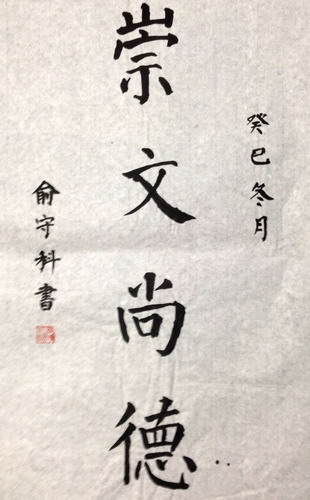 癸巳冬月
崇文尚德
俞守科書